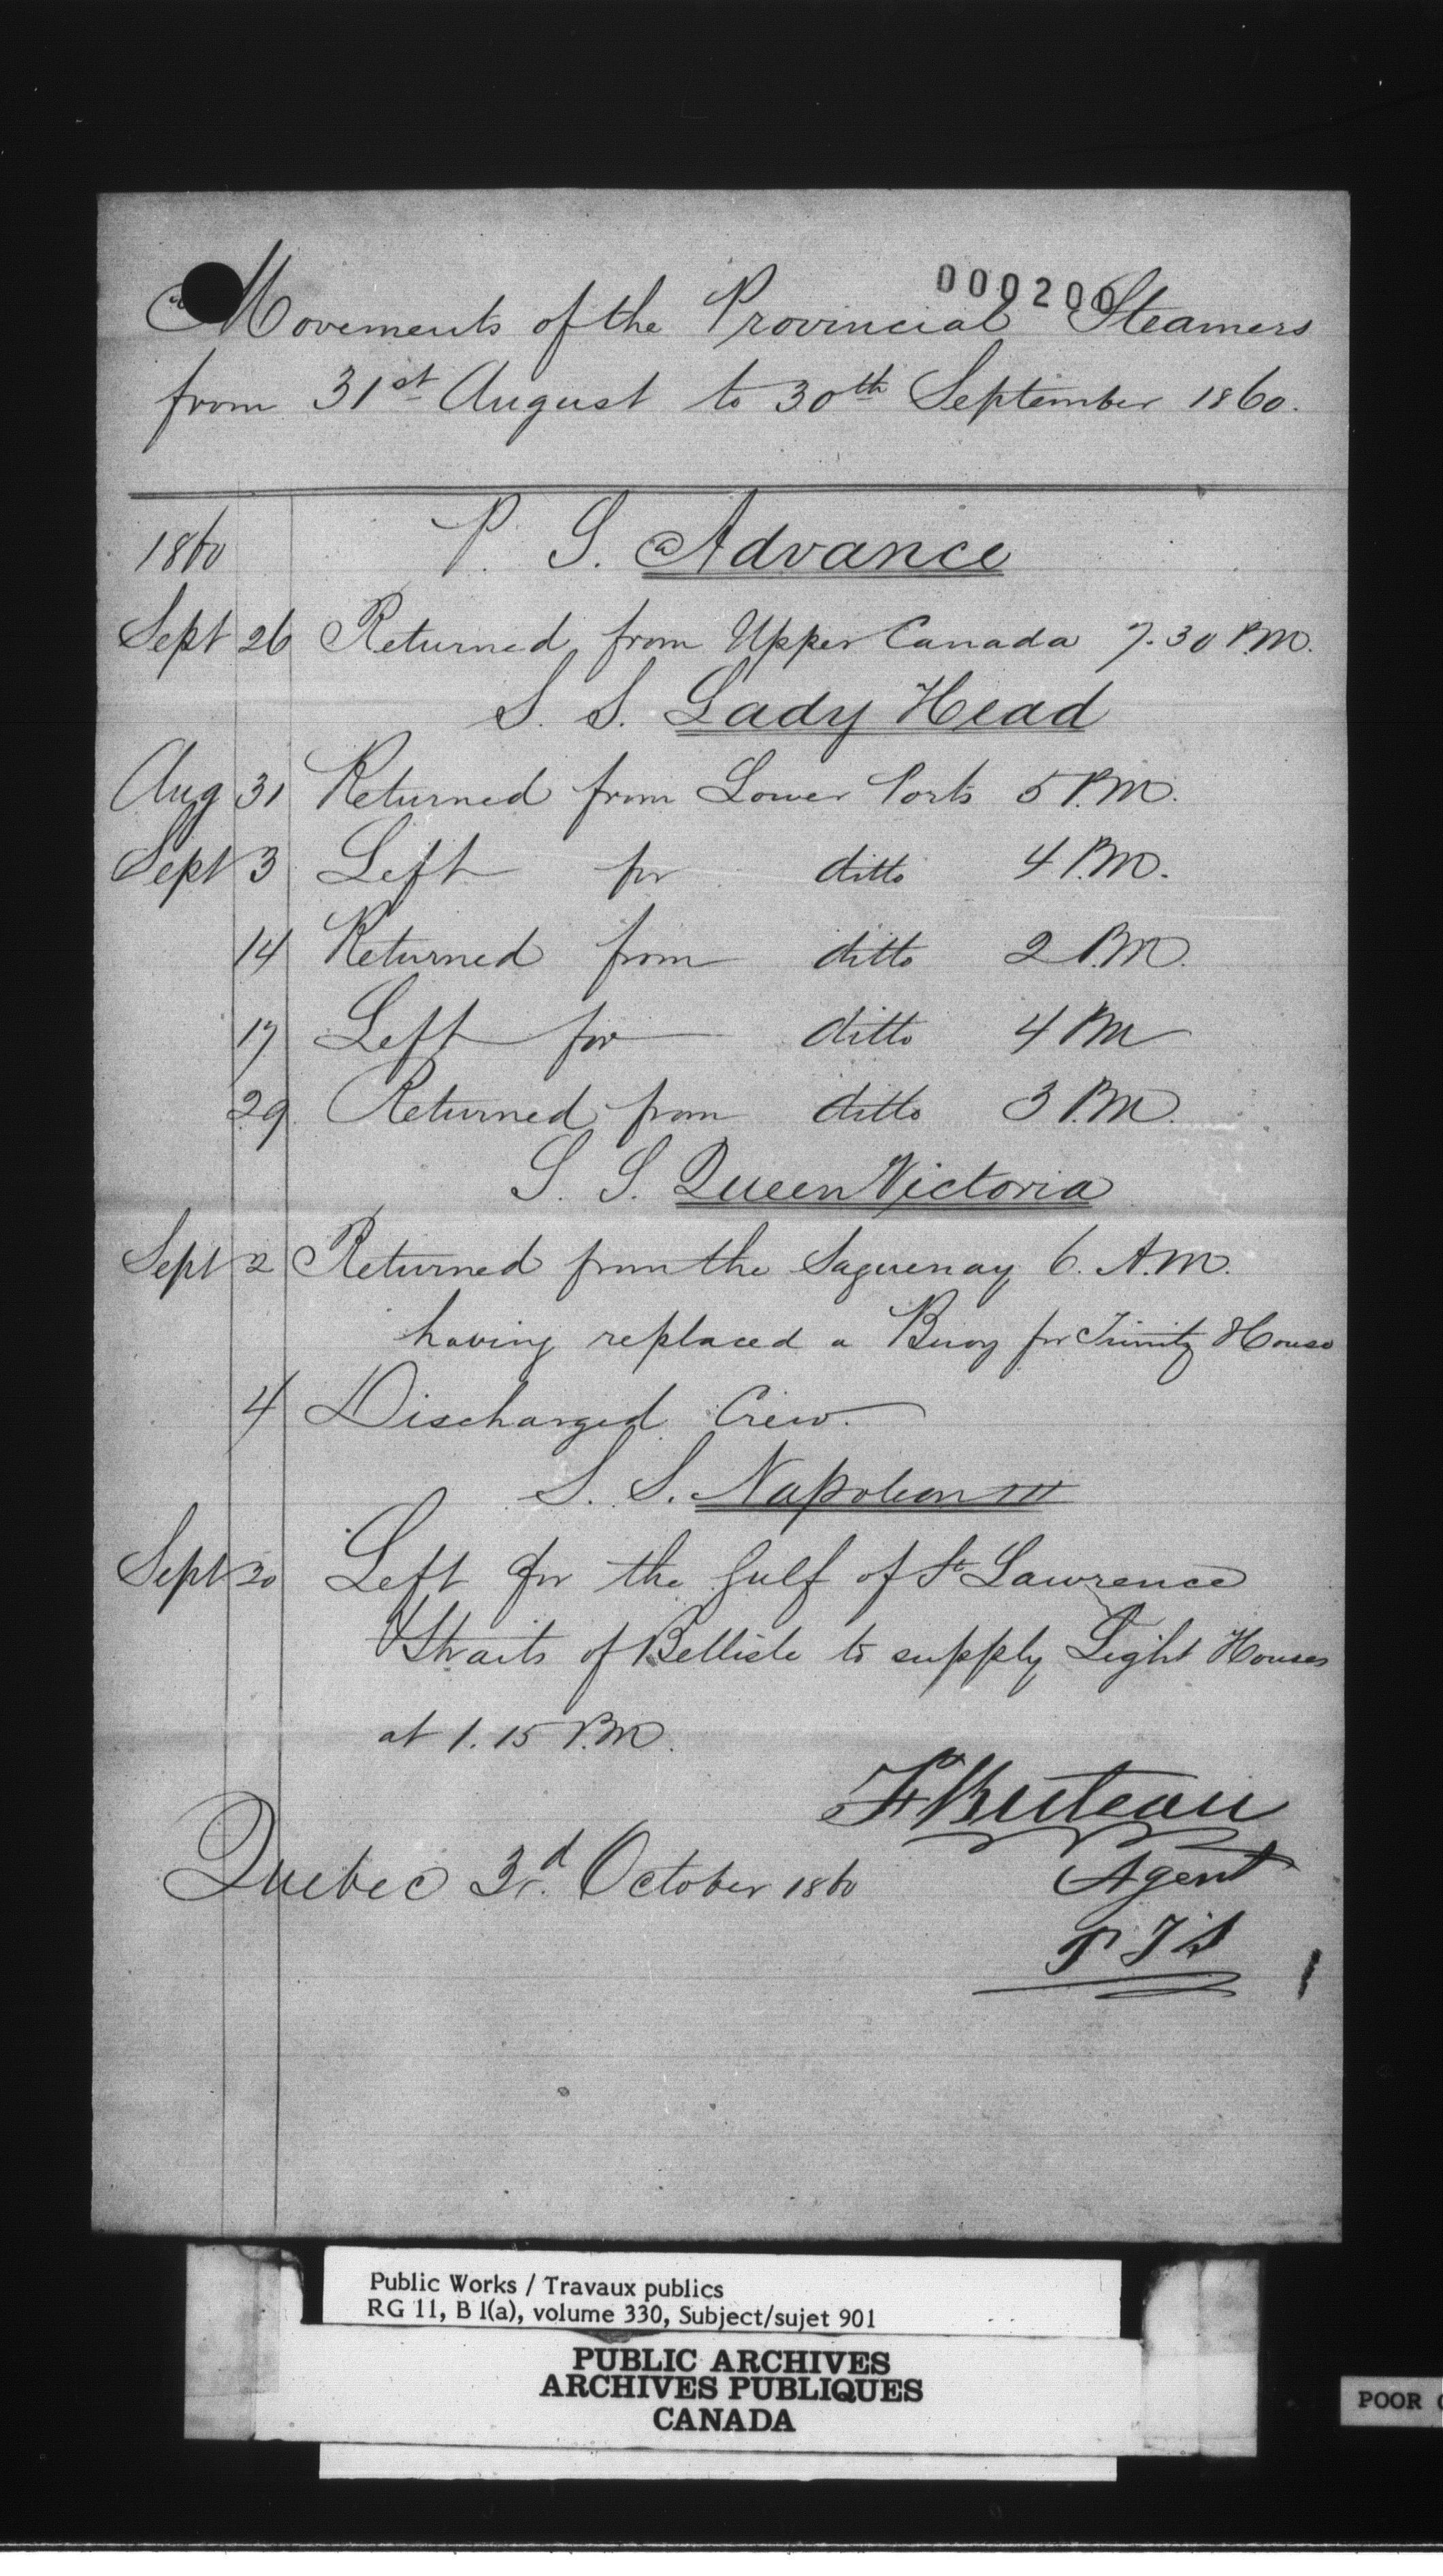 000200
Movements of the Provincial Steamers
from 31st August to 30th September 1860.
1860 P. S. Advance
Sept 26 Returned from Upper Canada 7.30 P.M.
S. S. Lady Head
Aug 31 Returned from Lower Ports 5 P.M.
Sept 3 Left for ditto 4 P.M.
14 Returned from ditto 2 P.M.
17 Left for ditto 4 PM
29 Returned from ditto 3 P.M.
S. S. Queen Victoria
Sept 2 Returned from the Saguenay 6. A.M.
having replaced a Buoy for Trinity House
4 Discharged Crew.
S. S. Napoleon III
Sept 20 Left for the Gulf of St Lawrence
& Straits of Bellisle to supply Light Houses
at 1.15 P.M.
F Buteau
Quebec 3d. October 1860 Agent
P T S
Public Works / Travaux publics
RG 11, B 1(a), volume 330, Subject/sujet 901
PUBLIC ARCHIVES
ARCHIVES PUBLIQUES
CANADA
POOR